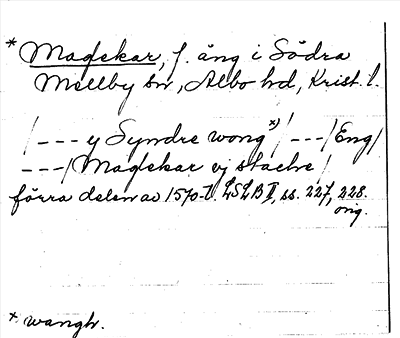 * Maglekar, f. äng i Södra
Mellby sn, Albo hd, Krist. l.
/ --- y Syndre wong x) / --- / Eng /
--- / Maglekar ej stacke /
förra delen av 1570-t. LSLB II, ss. 227, 228.
orig.
x wangh.